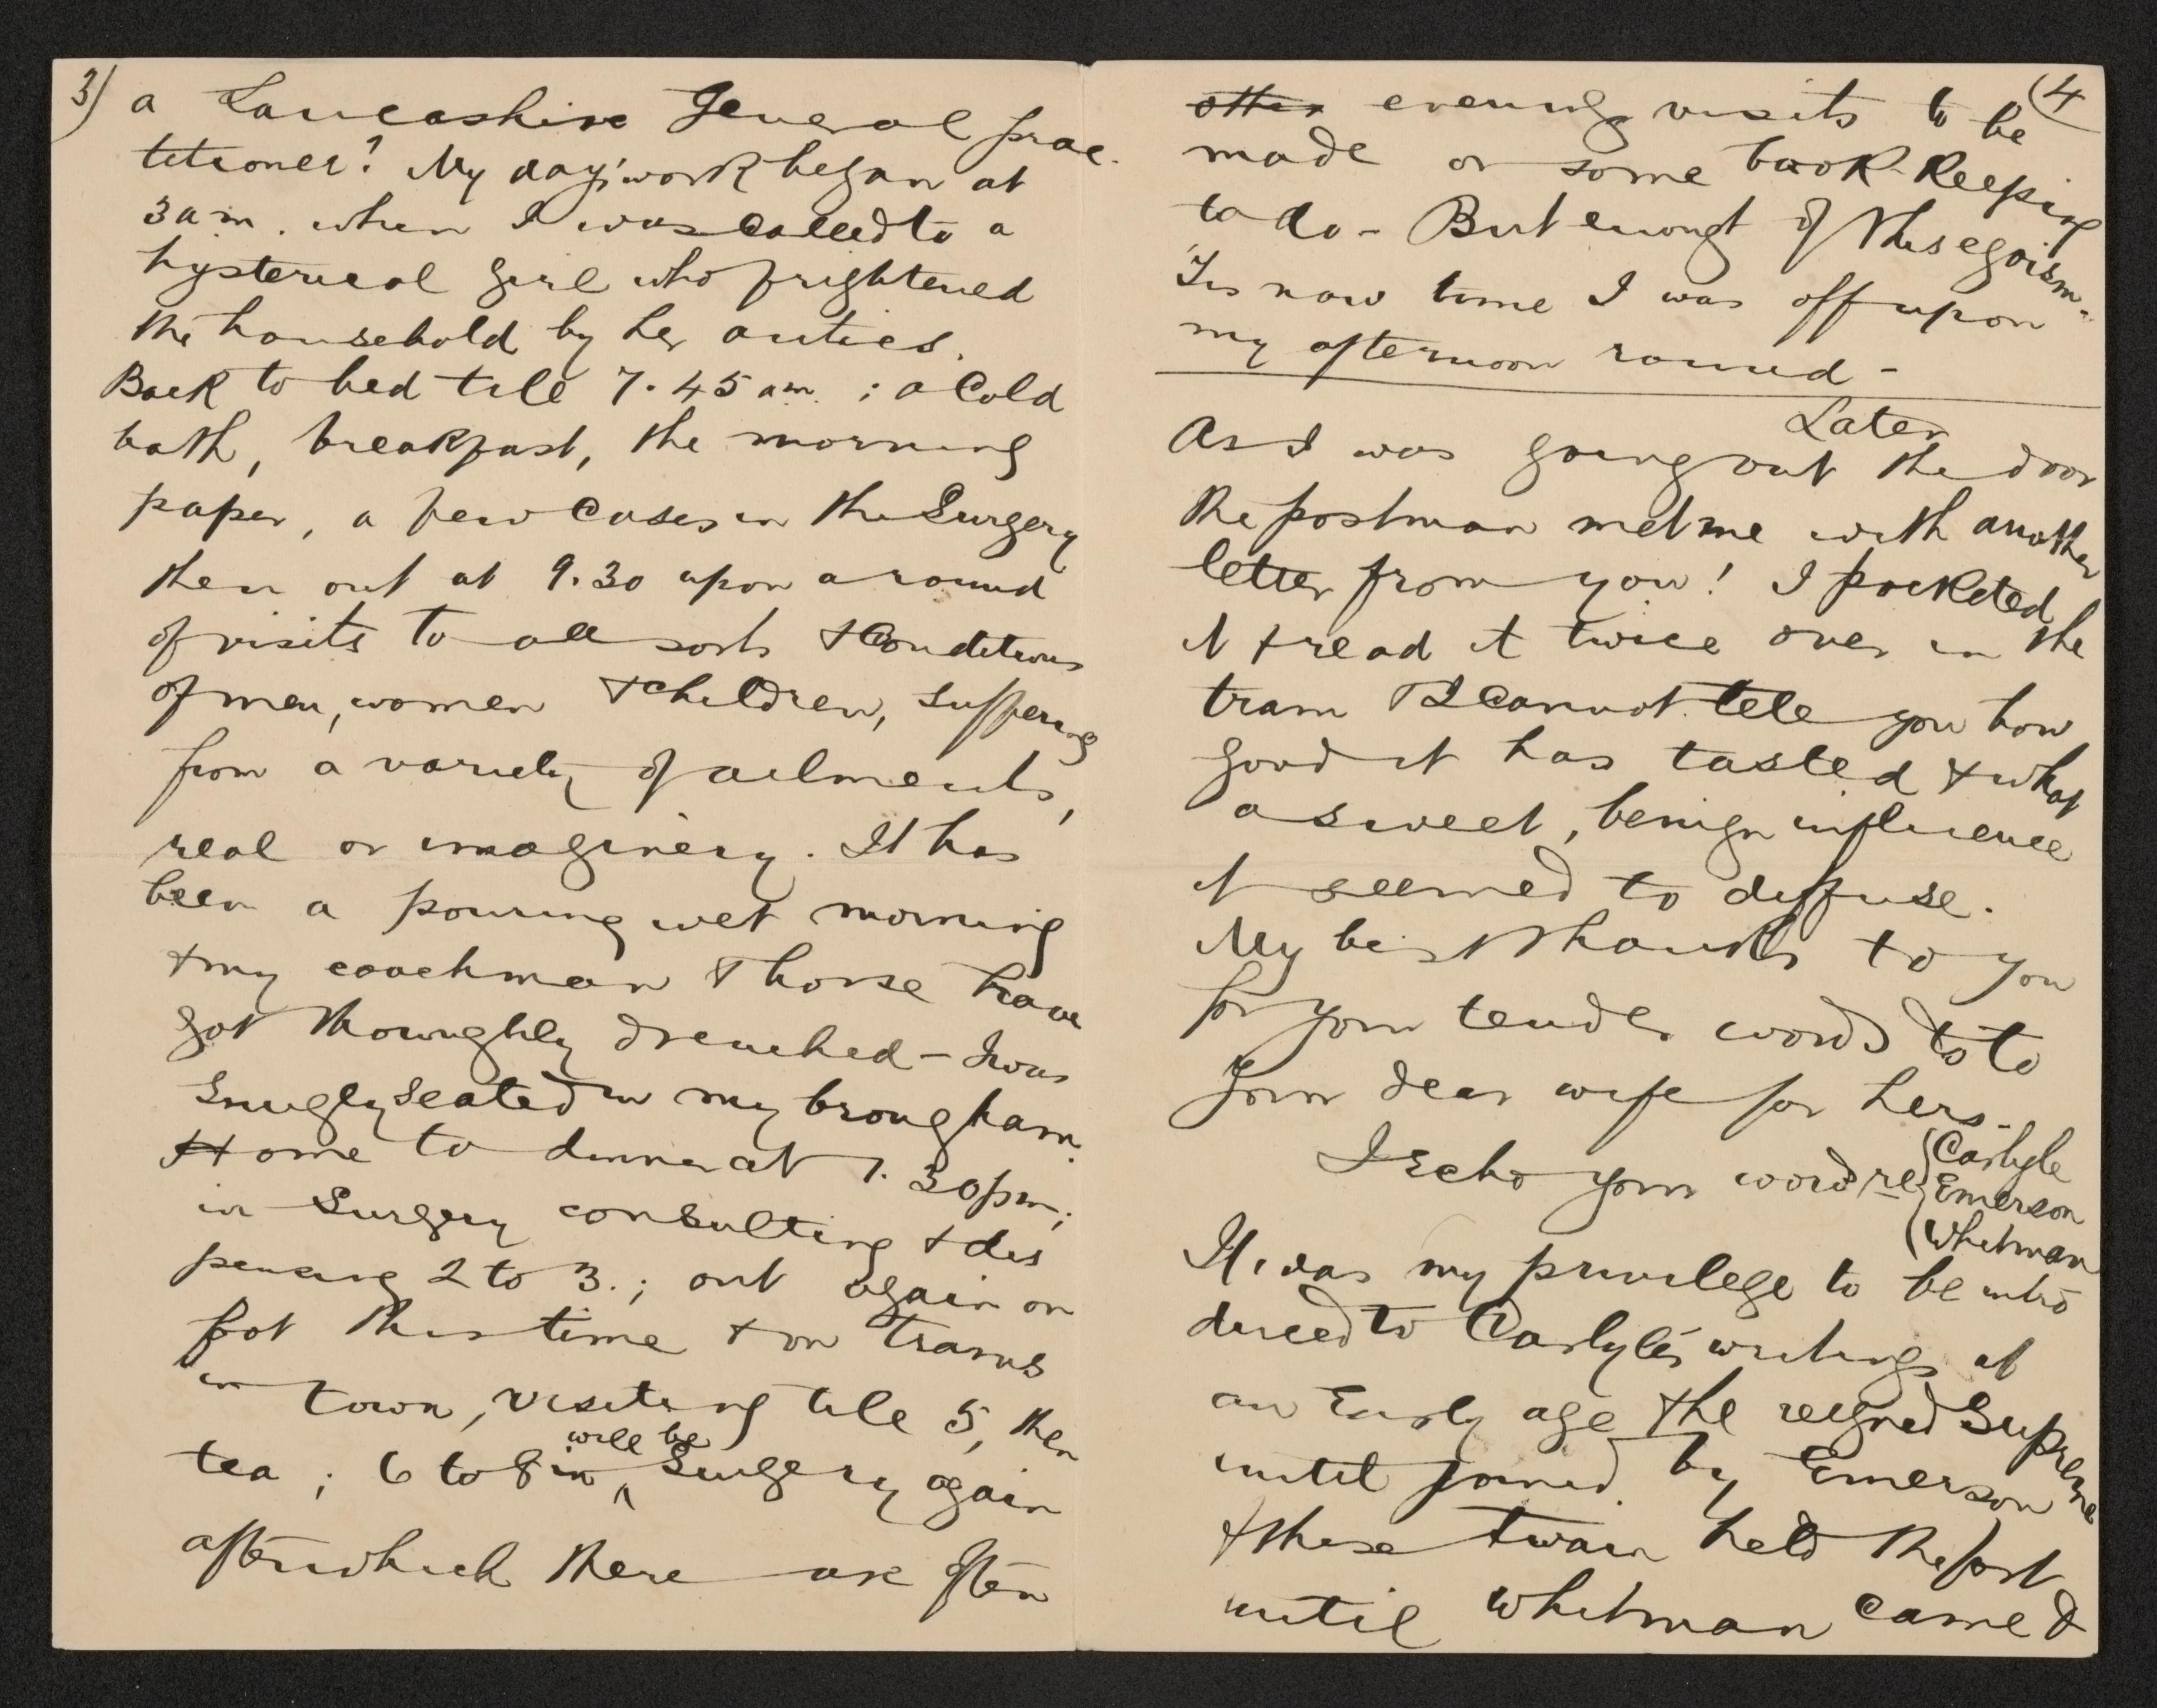 3) a Lancashire General prac-
titioner? My day's work began at
3 am. when I was called to a
hysterical girl who frightened
the household by her antics.
Back to bed till 7.45 am. ; a Cold
bath, breakfast, the morning
paper, a few Cases in the Surgery
then out at 9.30 upon a round
of visits to all sorts & Conditions
of men, women & children, suffering
from a variety of ailments,
real or imaginery. It has
been a pouring wet morning
& my coachman & horse have
got thoroughly drenched – I was
snugly seated in my brougham.
Home to dinner at 1.30pm;
in Surgery consulting & dis
pensing 2 to 3. ; out again on
foot this time & on trams
in town, visiting till 5, then
tea ; 6 to 8 in will be Surgery again
after which there are often
(4
other evening visits to be
made or some book-keeping
to do – But enough of this egoism.
'Tis now time I was off upon
my afternoon round –
Later
As I was going out the door
the postman met me with another
letter from you! I pocketed
it & read it twice over in the
tram & I cannot tell you how
good it has tasted & what
a sweet, benign influence
it seemed to diffuse.
My best thanks to you
for your tender words & to
your dear wife for hers.
I echo your word re Carlyle
Emerson
Whitman
It was my privilege to be intro
duced to Carlyle's writings at
an Early age & he reigned Supreme
until joined by Emerson
& these twain held the fort
until Whitman came &